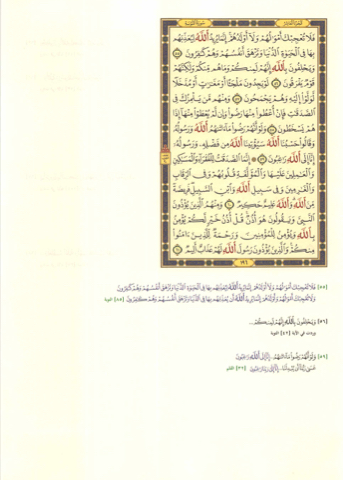 فَلَا تُعْجِبْكَ أَمْوَٰلُهُمْ وَلَآ أَوْلَٰدُهُمْ إِنَّمَا يُرِيدُ ٱللَّهُ لِيُعَذِّبَهُم
بِهَا فِي ٱلْحَيَوٰةِ ٱلدُّنْيَا وَتَزْهَقَ أَنفُسُهُمْ وَهُمْ كَٰفِرُونَ ٥٥
وَيَحْلِفُونَ بِٱللَّهِ إِنَّهُمْ لَمِنكُمْ وَمَا هُم مِّنكُمْ وَلَٰكِنَّهُمْ
قَوْمٌ يَفْرَقُونَ ٥٦ لَوْ يَجِدُونَ مَلْجَـًٔا أَوْ مَغَٰرَٰتٍ أَوْ مُدَّخَلًا
لَّوَلَّوْا۟ إِلَيْهِ وَهُمْ يَجْمَحُونَ ٥٧ وَمِنْهُم مَّن يَلْمِزُكَ فِي
ٱلصَّدَقَٰتِ فَإِنْ أُعْطُوا۟ مِنْهَا رَضُوا۟ وَإِن لَّمْ يُعْطَوْا۟ مِنْهَآ إِذَا
هُمْ يَسْخَطُونَ ٥٨ وَلَوْ أَنَّهُمْ رَضُوا۟ مَآ ءَاتَىٰهُمُ ٱللَّهُ وَرَسُولُهُۥ
وَقَالُوا۟ حَسْبُنَا ٱللَّهُ سَيُؤْتِينَا ٱللَّهُ مِن فَضْلِهِۦ وَرَسُولُهُۥٓ
إِنَّآ إِلَى ٱللَّهِ رَٰغِبُونَ ٥٩ إِنَّمَا ٱلصَّدَقَٰتُ لِلْفُقَرَآءِ وَٱلْمَسَٰكِينِ
وَٱلْعَٰمِلِينَ عَلَيْهَا وَٱلْمُؤَلَّفَةِ قُلُوبُهُمْ وَفِي ٱلرِّقَابِ
وَٱلْغَٰرِمِينَ وَفِي سَبِيلِ ٱللَّهِ وَٱبْنِ ٱلسَّبِيلِ فَرِيضَةً
مِّنَ ٱللَّهِ وَٱللَّهُ عَلِيمٌ حَكِيمٌ ٦٠ وَمِنْهُمُ ٱلَّذِينَ يُؤْذُونَ
ٱلنَّبِيَّ وَيَقُولُونَ هُوَ أُذُنٌ قُلْ أُذُنُ خَيْرٍ لَّكُمْ يُؤْمِنُ
بِٱللَّهِ وَيُؤْمِنُ لِلْمُؤْمِنِينَ وَرَحْمَةٌ لِّلَّذِينَ ءَامَنُوا۟
مِنكُمْ وَٱلَّذِينَ يُؤْذُونَ رَسُولَ ٱللَّهِ لَهُمْ عَذَابٌ أَلِيمٌ ٦١
١٩٦
[٥٥] فَلَا تُعْجِبْكَ أَمْوَٰلُهُمْ وَلَآ أَوْلَٰدُهُمْ إِنَّمَا يُرِيدُ ٱللَّهُ لِيُعَذِّبَهُم بِهَا فِي ٱلْحَيَوٰةِ ٱلدُّنْيَا وَتَزْهَقَ أَنفُسُهُمْ وَهُمْ كَٰفِرُونَ
وَلَا تُعْجِبْكَ أَمْوَٰلُهُمْ وَأَوْلَٰدُهُمْ إِنَّمَا يُرِيدُ ٱللَّهُ أَن يُعَذِّبَهُم بِهَا فِي ٱلدُّنْيَا وَتَزْهَقَ أَنفُسُهُمْ وَهُمْ كَٰفِرُونَ [٨٥] التوبة
[٥٦] وَيَحْلِفُونَ بِٱللَّهِ إِنَّهُمْ لَمِنكُمْ...
[٥٩] وَلَوْ أَنَّهُمْ رَضُوا۟ مَآ ءَاتَىٰهُمُ ... إِنَّآ إِلَى ٱللَّهِ رَٰغِبُونَ
عَسَىٰ رَبُّنَآ أَن يُبْدِلَنَا... إِنَّآ إِلَىٰ رَبِّنَا رَٰغِبُونَ [٣٢] القلم